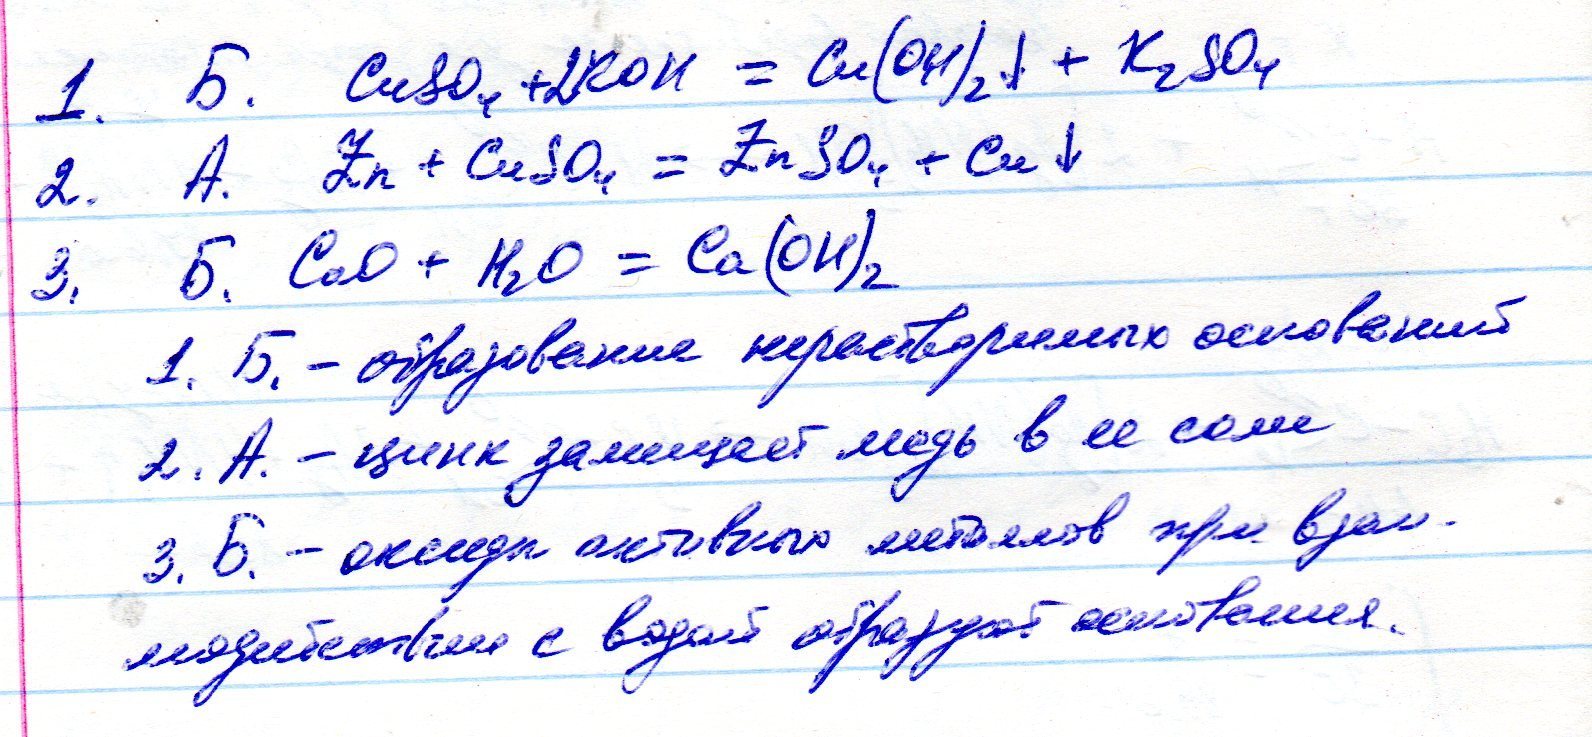 1. Б. CuSO₄ + 2KOH = Cu(OH)₂↓ + K₂SO₄
2. А. Zn + CuSO₄ = ZnSO₄ + Cu↓
3. Б. CaO + H₂O = Ca(OH)₂
1. Б. – образование нерастворимых оснований
2. А. – цинк замещает медь в ее соли
3. Б. – оксиды активных металлов при взаи-
модействии с водой образуют основания.